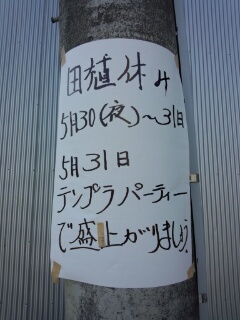 田植休み
5月30(夜)～31日
5月31日
テンプラパーティー
で盛上がりましょう。